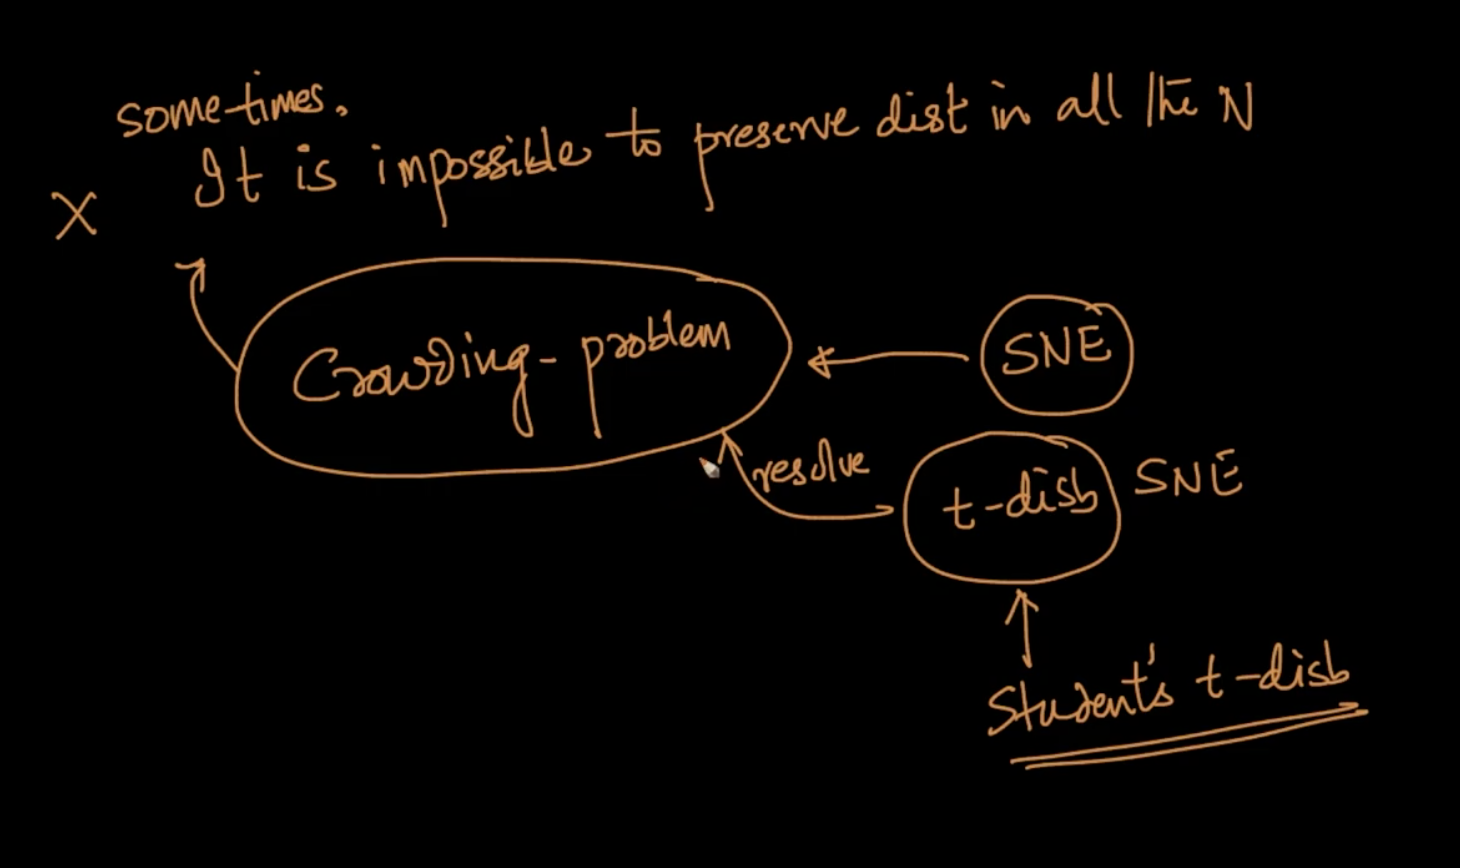 sometimes.
It is impossible to preserve dist in all the N
X
Crowding-problem
SNE
resolve
t-disb SNE
Student's t-disb